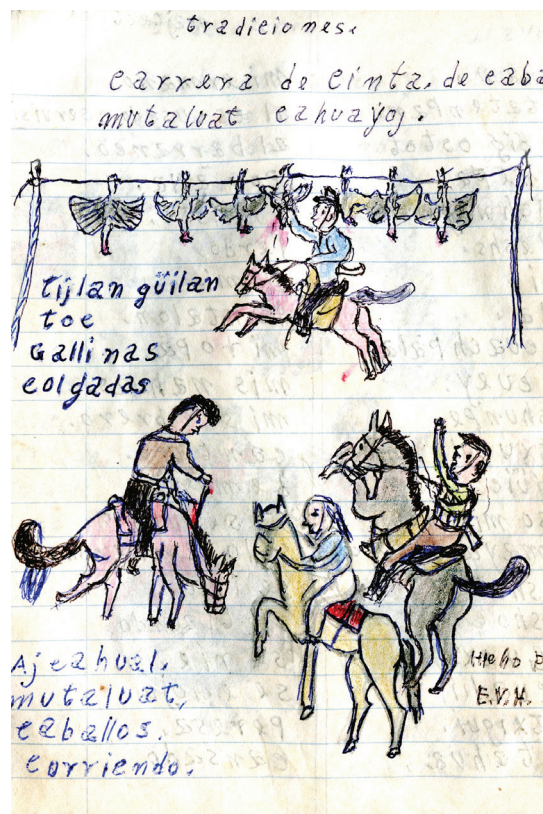 tradiciones.
carrera de cinta. de caba
mutaluat cahuayoj.
tijlan güilan
toc
Gallinas
colgadas
Ajcahual.
mutaluat,
caballos.
corriendo.
Hecho p
E.V.H.